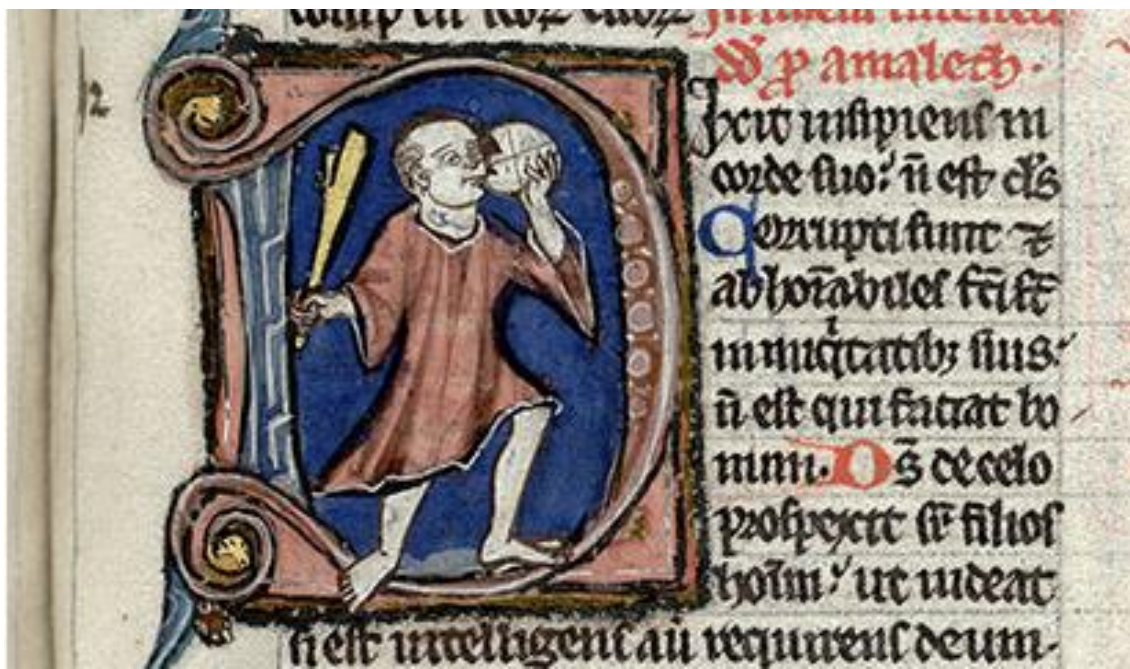 dd̄ ꝑ amalech.
Dixit insipiens in
corde suo: n̄ est ds̄
Corrupti sunt ⁊
abhoīabiles fc̄i st̄
in iniqͥtatibꝫ suis:
n̄ est qui faciat bo
num. Ds̄ de celo
prospexit sr̄ filios
hoīm: ut uideat
si est intelligens aū requirens deum.